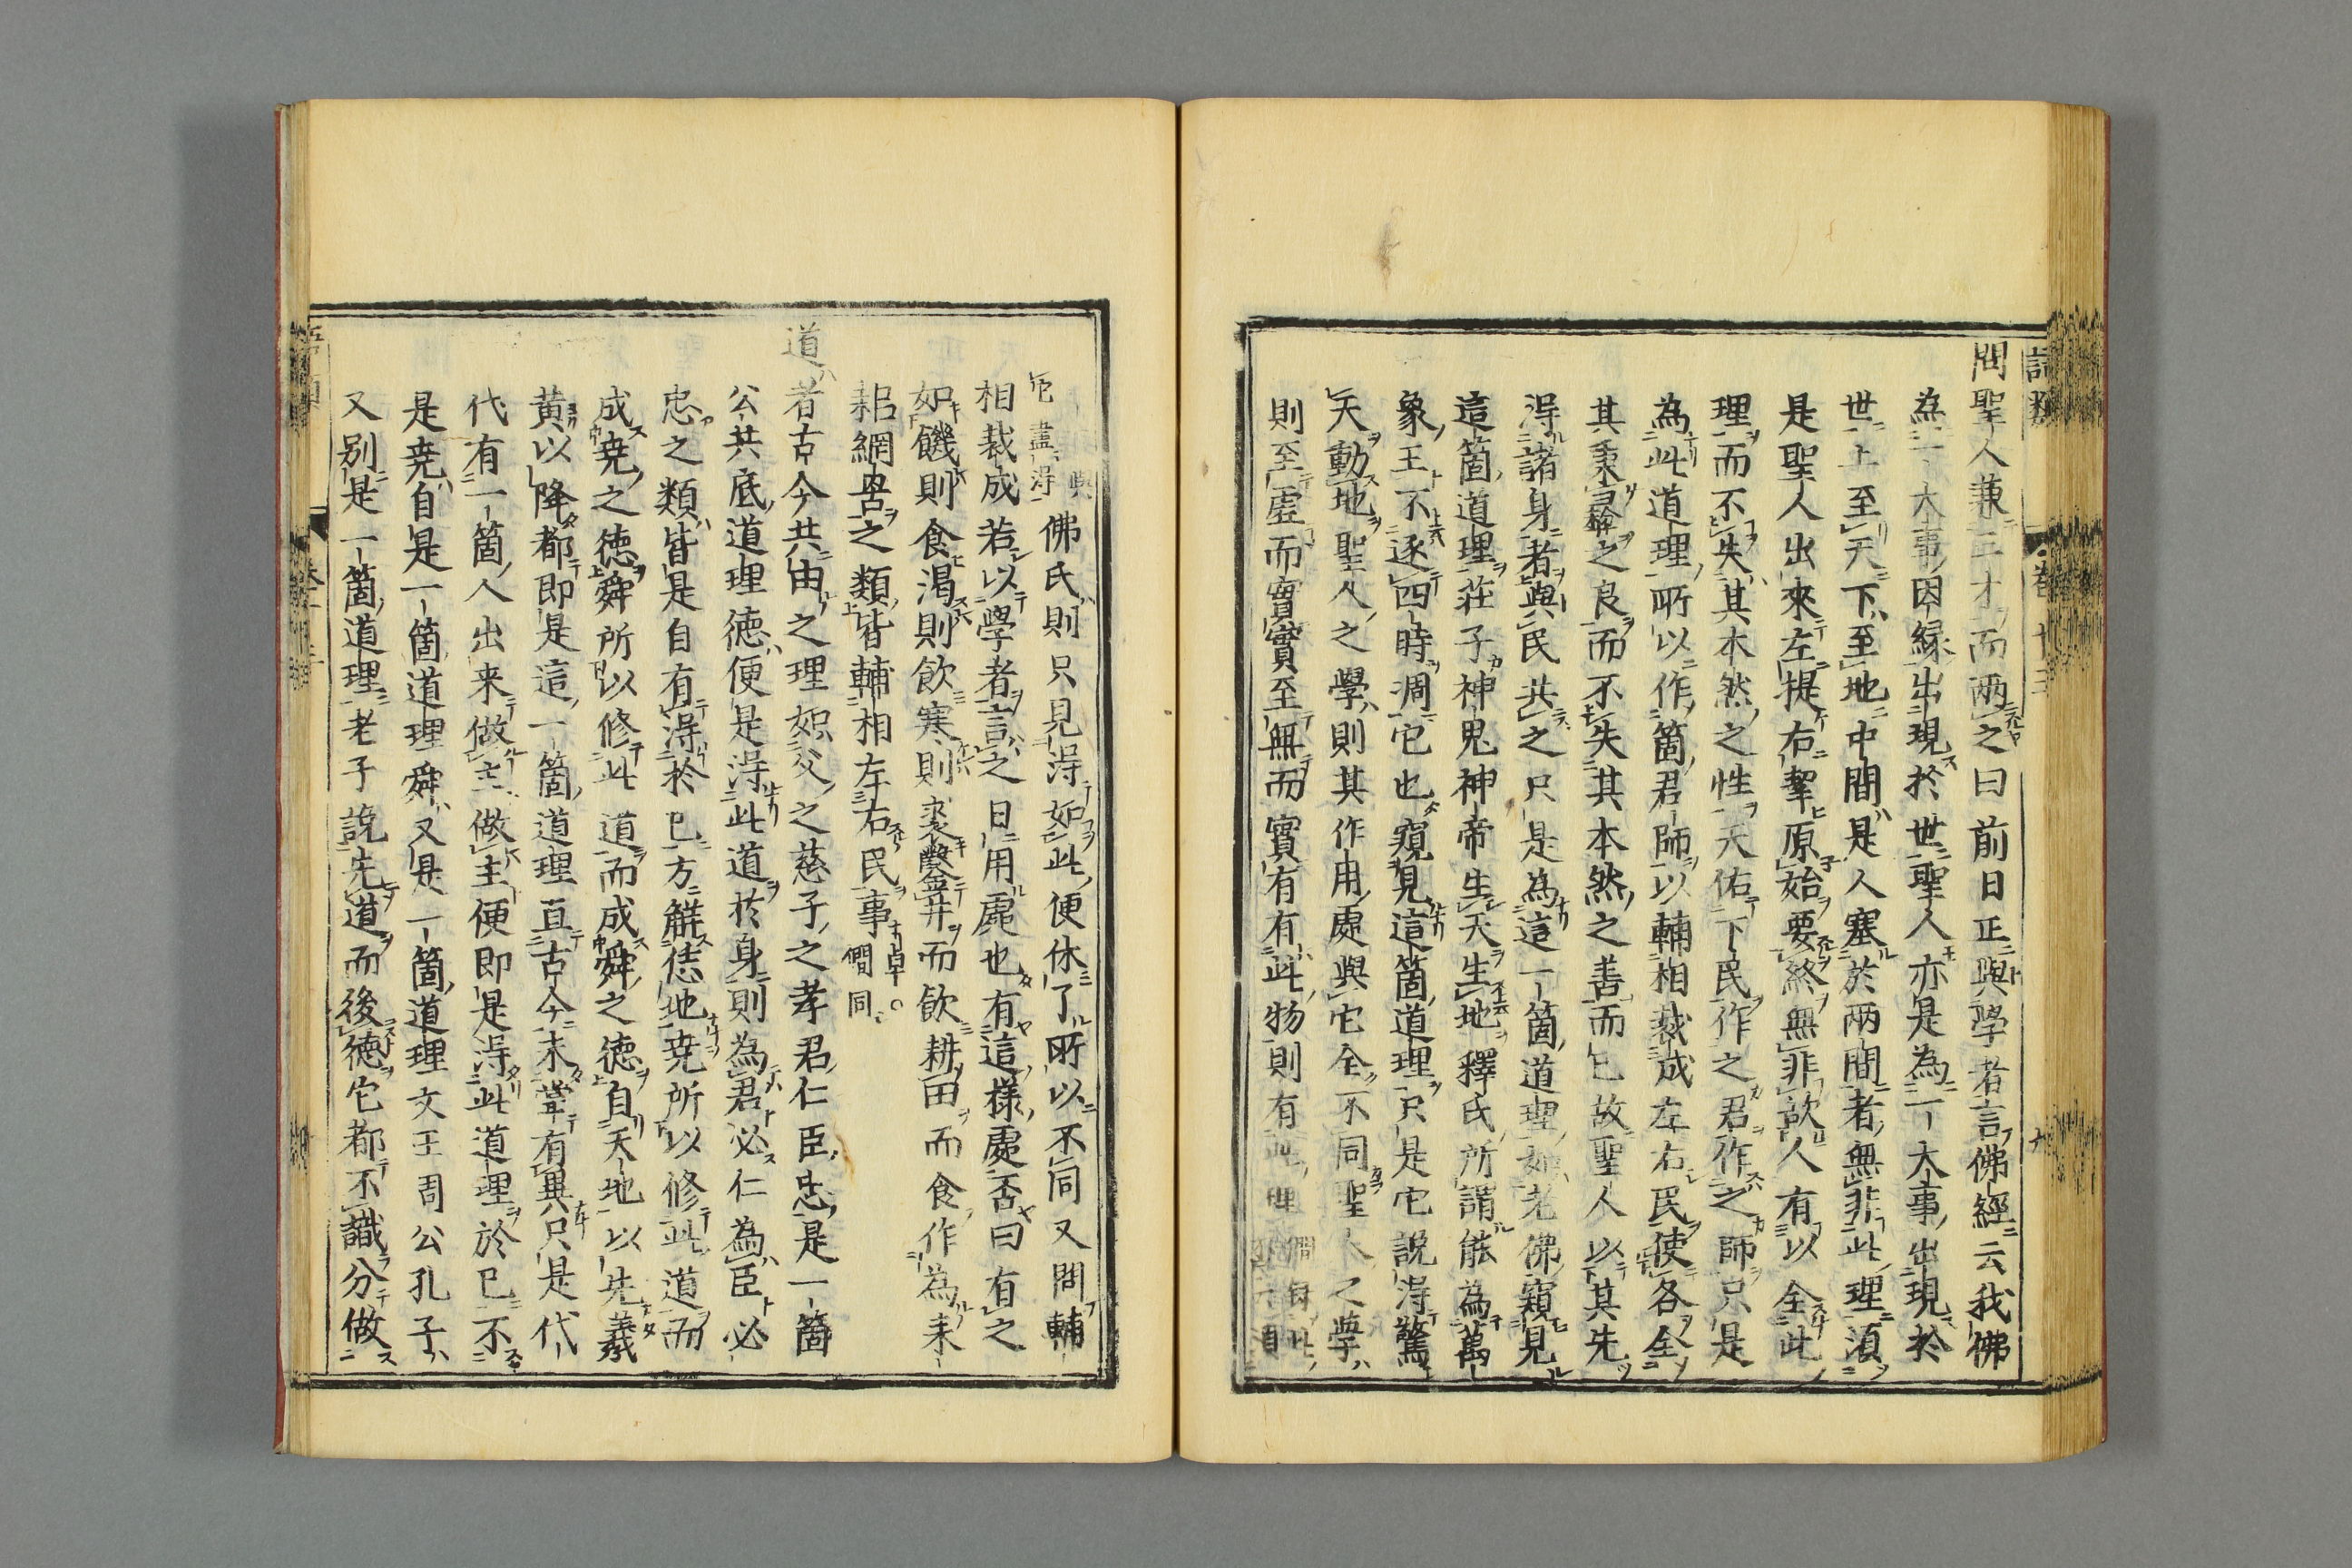 語類 卷十三 九
問聖人兼三才而兩之曰前日正與學者言佛經云我佛
為一大事因緣出現於世聖人亦是為一大事出現於
世上至天下至地中間是人塞於兩間者無非此理須
是聖人出來左提右挈原始要終無非欲人有以全此
理而不失其本然之性天佑下民作之君作之師只是
為此道理所以作箇君師以輔相裁成左右民使各全
其秉彝之良而不失其本然之善而已故聖人以其先
得諸身者與民共之只是為這一箇道理如老佛窺見
這箇道理莊子神鬼神帝生天生地釋氏所謂能為萬
象主不逐四時凋它也窺見這箇道理只是它說得驚
天動地聖人之學則其作用處與它全不同聖人之學
則至虛而實實至無而實有有此物則有此理 僩
佛氏則只見得如此便休了所以不同又問輔
相裁成若以學者言之日用處也有這樣處否曰有之
如饑則食渴則飲寒則裘鑿井而飲耕田而食作為耒
耜網罟之類皆輔相左右民事 卓○僩同
道者古今共由之理如父之慈子之孝君仁臣忠是一箇
公共底道理德便是得此道於身則為君必仁為臣必
忠之類皆是自有得於己方解恁地堯所以修此道而
成堯之德舜所以修此道而成舜之德自天地以先羲
黃以降都即是這一箇道理亘古今未嘗有異只是代
代有一箇人出來做主做主便即是得此道理於己不
是堯自是一箇道理舜又是一箇道理文王周公孔子
又別是一箇道理老子說失道而後德它都不識分做